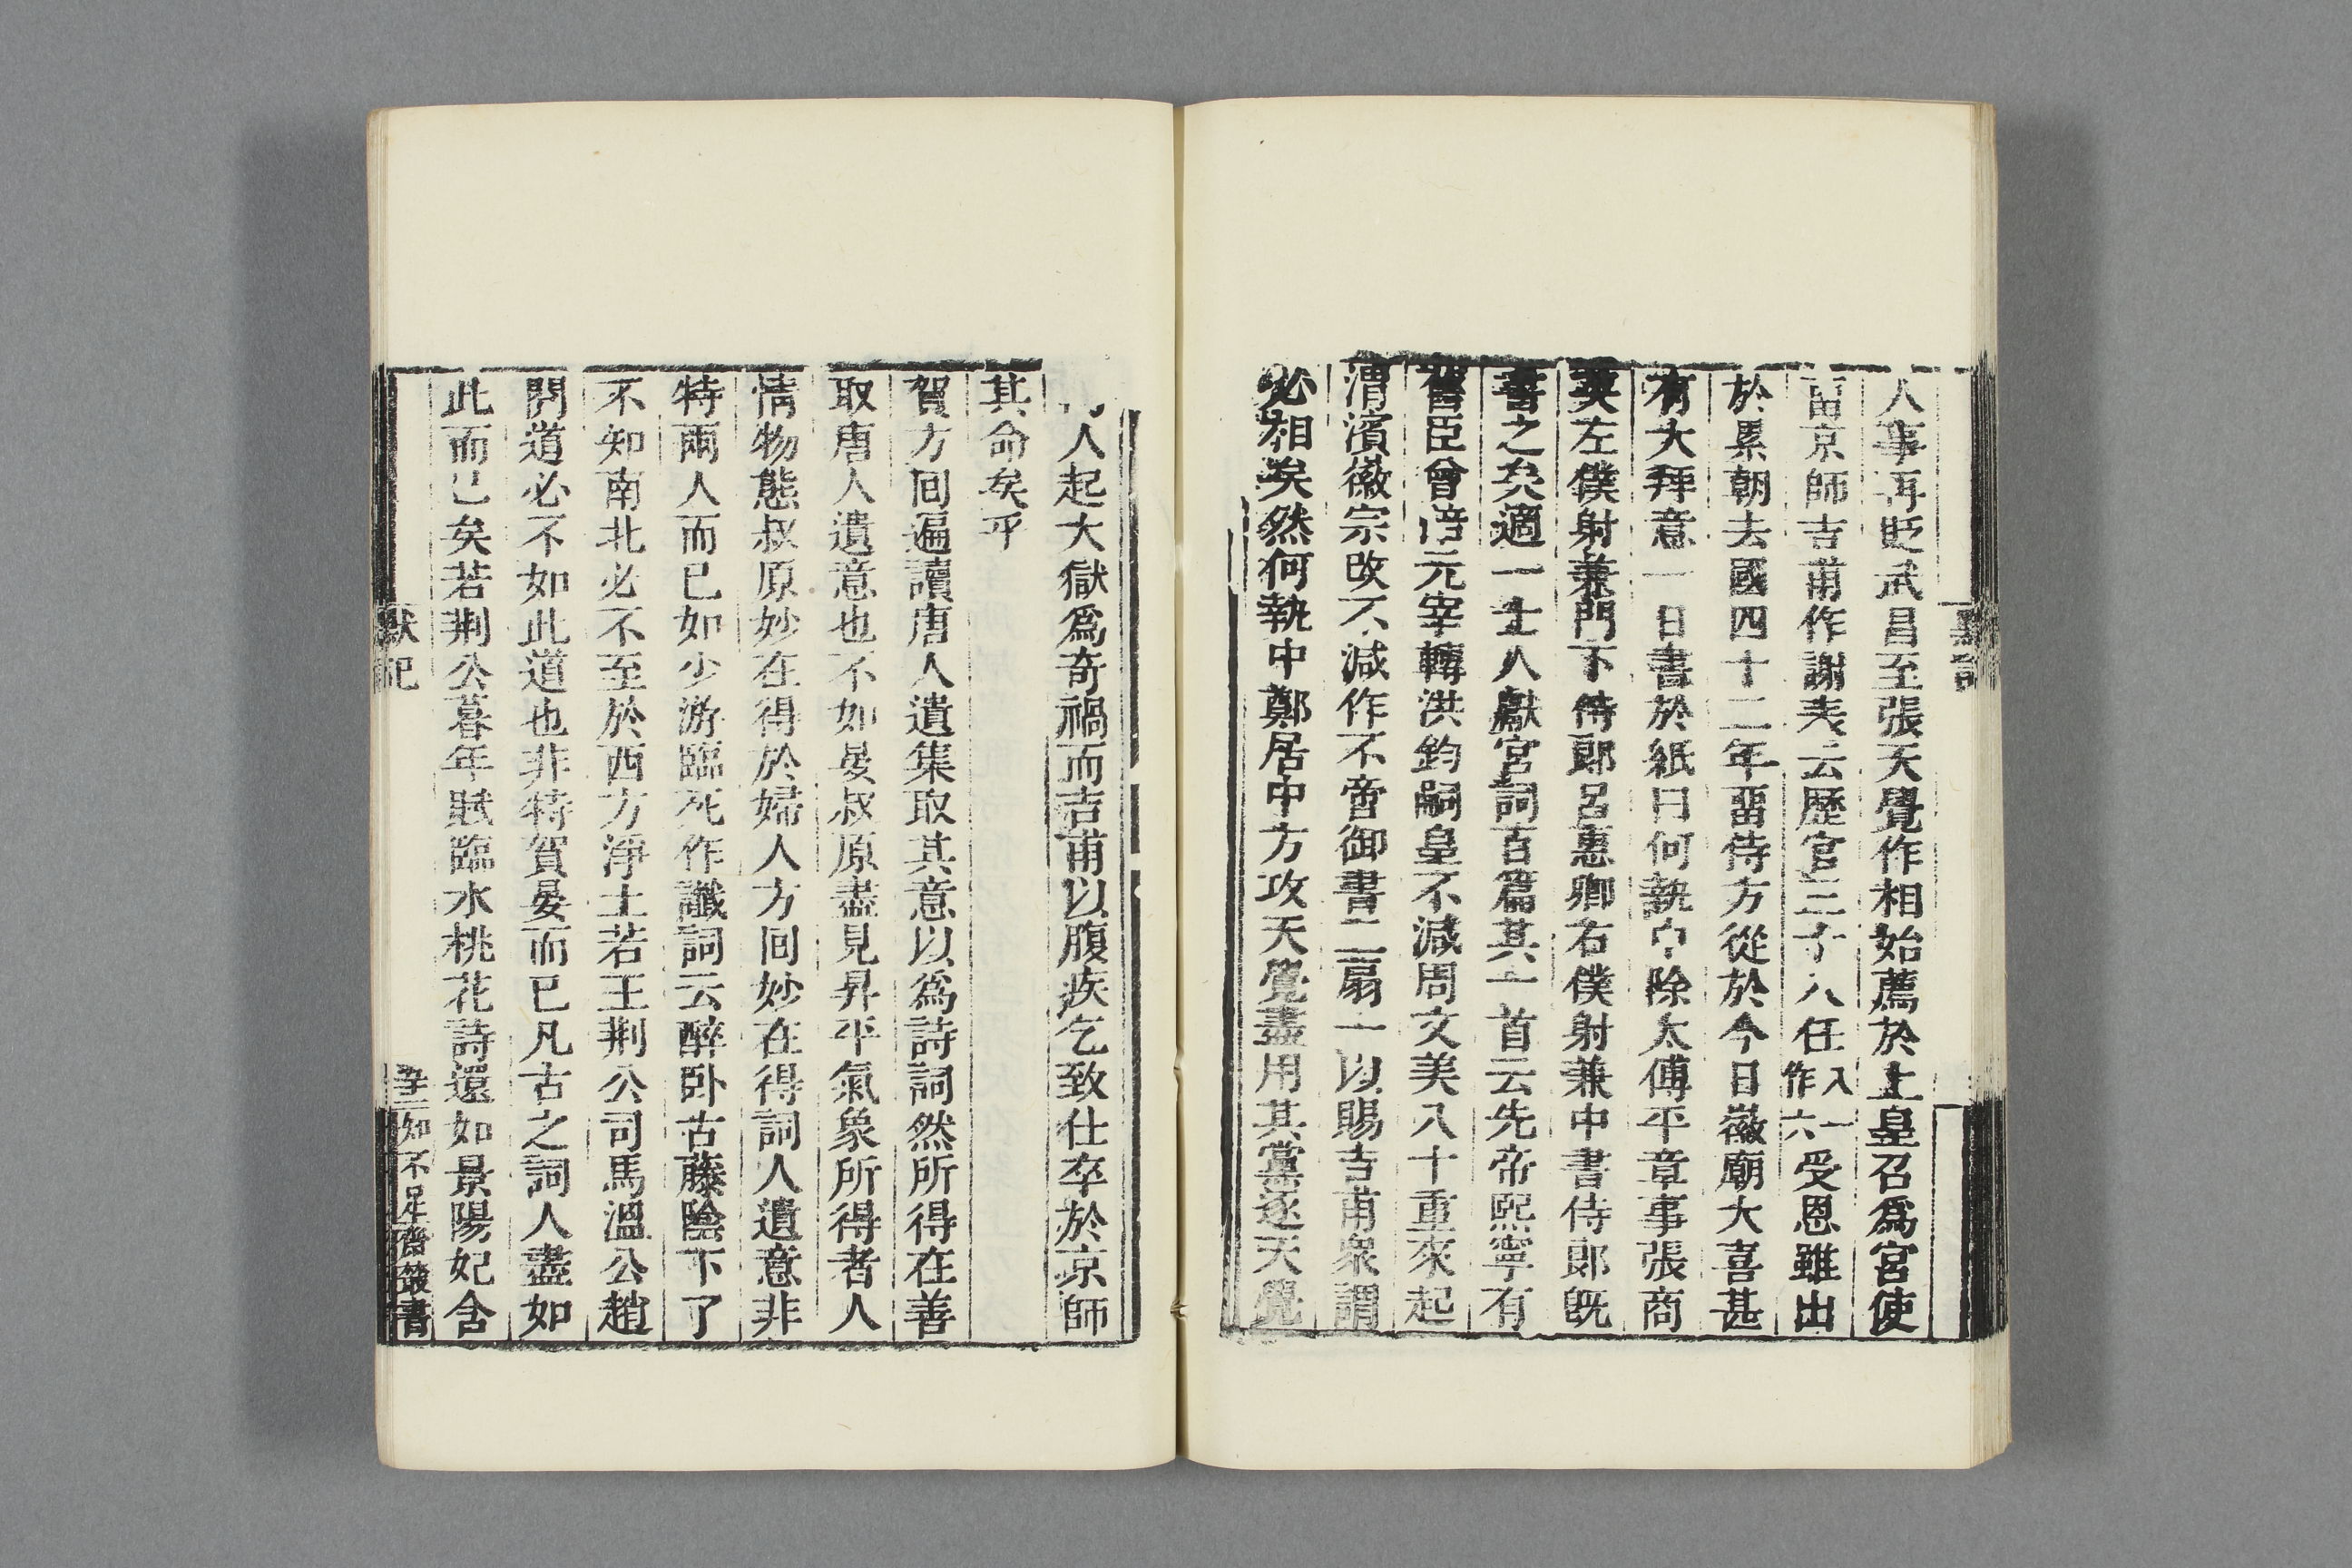 人事再貶武昌至張天覺作相始薦於上皇召爲宮使
畱京師吉甫作謝表云歷官三十八任入作一六受恩雖出
於累朝去國四十二年畱待方從於今日徽廟大喜甚
有大拜意一日書於紙曰何執中除太傅平章事張商
英左僕射兼門下侍郎呂惠卿右僕射兼中書侍郎旣
書之矣適一士人獻宮詞百篇其一首云先帝熙寧有
舊臣曾陪元宰轉洪鈞嗣皇不減周文美八十重來起
渭濱徽宗改不減作不啻御書二扇一以賜吉甫衆謂
必相矣然何執中鄭居中方攻天覺盡用其黨逐天覺
人起大獄爲奇禍而吉甫以腹疾乞致仕卒於京師
其命矣乎
賀方回遍讀唐人遺集取其意以爲詩詞然所得在善
取唐人遺意也不如晏叔原盡見昇平氣象所得者人
情物態叔原妙在得於婦人方回妙在得詞人遺意非
特兩人而已如少游臨死作讖詞云醉臥古藤陰下了
不知南北必不至於西方淨土若王荆公司馬溫公趙
閱道必不如此道也非特賀晏而已凡古之詞人盡如
此而已矣若荆公暮年賦臨水桃花詩還如景陽妃含
默記
知不足齋叢書